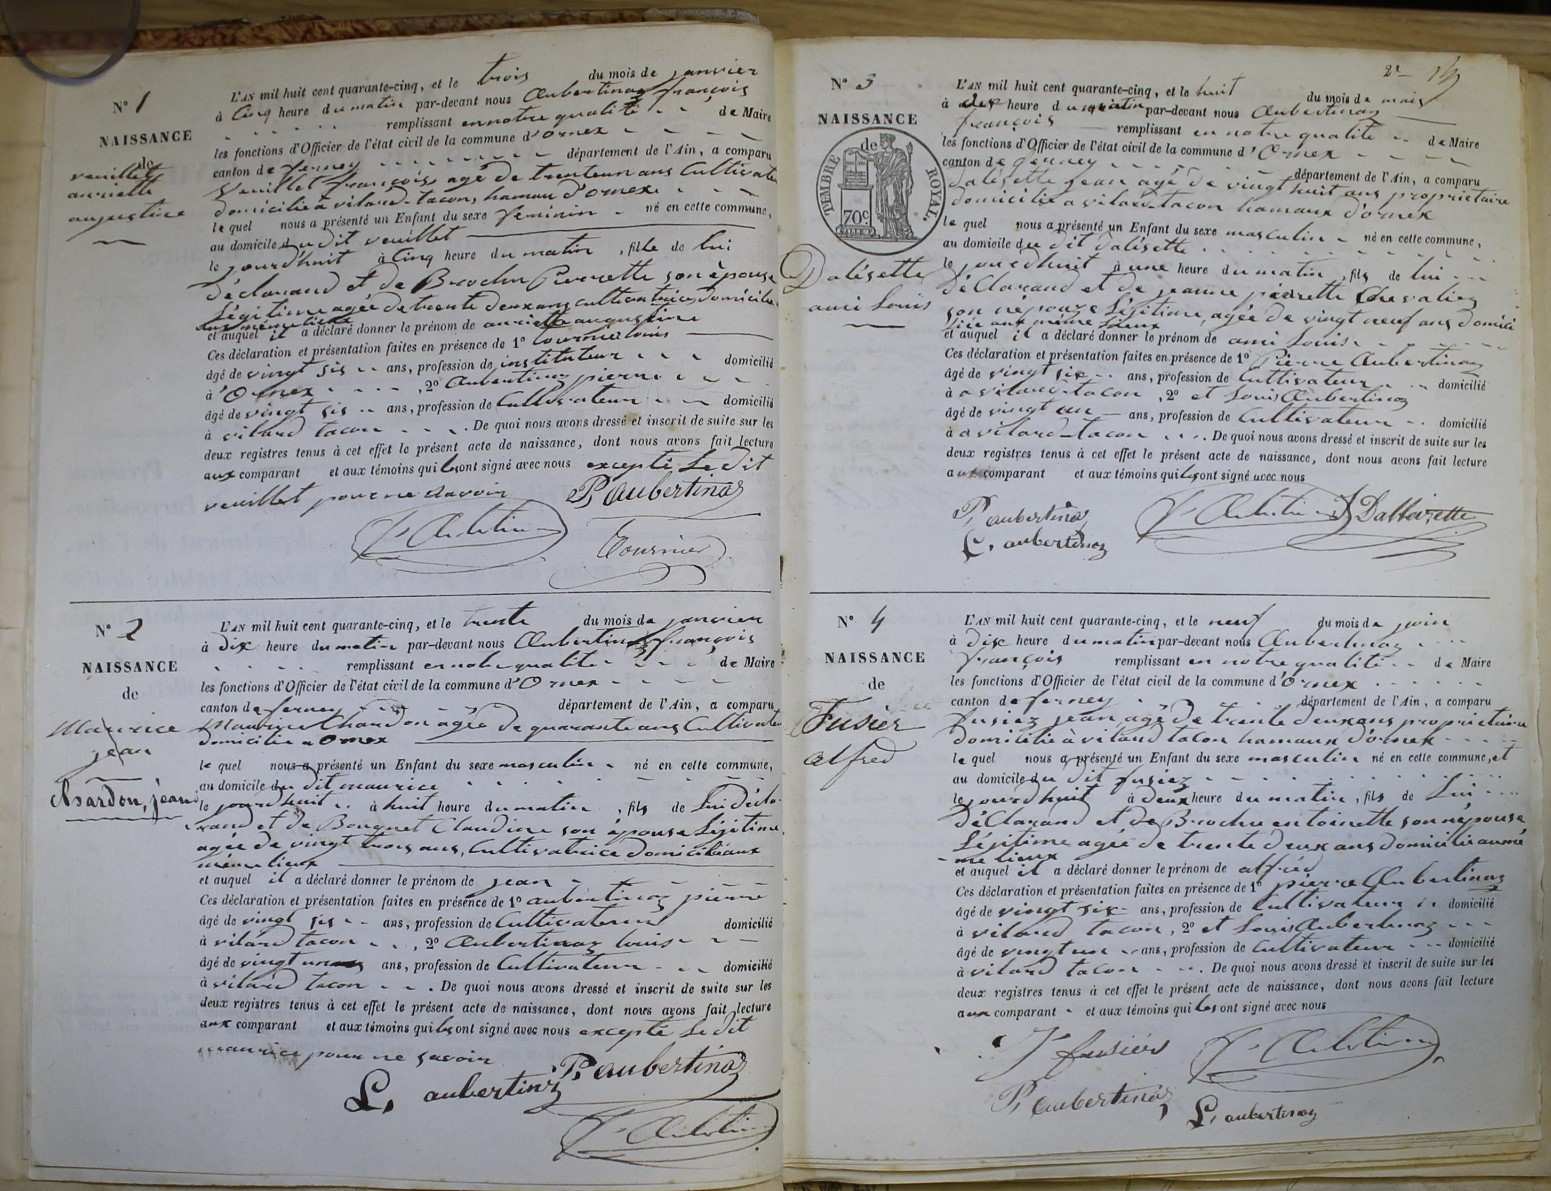 N° 1
NAISSANCE
de
veuillet
anriette
augustine
L'AN mil huit cent quarante-cinq, et le trois du mois de janvier
à Cinq heure du matin par-devant nous Aubertinaz françois
remplissant en notre qualité de Maire
les fonctions d'Officier de l'état civil de la commune d'Ornex
canton de ferney département de l'Ain, a comparu
veuillet françois agé de trente un ans Cultivate
domicilié à vilard tacon, hamau d'ornex
le quel nous a présenté un Enfant du sexe féminin né en cette commune,
au domicile du dit veuillet
le jourd'huit à Cinq heure du matin, fille de lui
déclarand et de Brochu Pierrette son épouse
légitime agée de trente deux ans cultivatrice, domicilie
aux même lieux
et auquel il a déclaré donner le prénom de anriette augustine
Ces déclaration et présentation faites en présence de 1° tournier louis
âgé de vingt sis ans, profession de instituteur domicilié
à d'Ornex 2° Aubertinaz pierre
âgé de vingt sis ans, profession de Cultivateur domicilié
à vilard tacon. De quoi nous avons dressé et inscrit de suite sur les
deux registres tenus à cet effet le présent acte de naissance, dont nous avons fait lecture
aux comparant et aux témoins qui les ont signé avec nous excepté Le dit
veuillet pour ne savoir
P. aubertinaz
Tournier
N° 2
NAISSANCE
de
Maurice
jean
Chardon, jean
L'AN mil huit cent quarante-cinq, et le trente du mois de janvier
à Dix heure du matin par-devant nous Aubertinaz françois
remplissant en notre qualité de Maire
les fonctions d'Officier de l'état civil de la commune d'Ornex
canton de ferney département de l'Ain, a comparu
Maurice Chardon agée de quarante ans Cultivate
domicilié a Ornex
le quel nous a présenté un Enfant du sexe masculin né en cette commune,
au domicile du dit maurice
le jourdhuit à huit heure du matin, fils de Lui Décla
rand et de Bouquet Claudine son épouse Légitime
agée de vingt trois ans, Cultivatrice domiciliée aux
même lieux
et auquel il a déclaré donner le prénom de jean
Ces déclaration et présentation faites en présence de 1° aubertinaz pierre
âgé de vingt sis ans, profession de Cultivateur domicilié
à vilard tacon, 2° Aubertinaz louis
âgé de vingt un ans, profession de Cultivateur domicilié
à vilard tacon. De quoi nous avons dressé et inscrit de suite sur les
deux registres tenus à cet effet le présent acte de naissance, dont nous avons fait lecture
aux comparant et aux témoins qui les ont signé avec nous excepté Le dit
maurice pour ne savoir
P. aubertinaz
L. aubertinaz
N° 3
NAISSANCE
de
TIMBRE ROYAL
70c
Dalésette
ami Louis
L'AN mil huit cent quarante-cinq, et le huit du mois de mais
à dix heure du matin par-devant nous Aubertinaz
françois remplissant en notre qualité de Maire
les fonctions d'Officier de l'état civil de la commune d'Ornex
canton de ferney département de l'Ain, a comparu
Dalésette jean agé de vingt huit ans proprietaire
domicilié a vilard tacon hamaux d'ornex
le quel nous a présenté un Enfant du sexe masculin né en cette commune,
au domicile du dit Dalésette
le jourdhuit à une heure du matin, fils de lui
déClarand et de jeanne pierrette Chevalier
son népouze Légitime, agée de vingt neuf ans domici
liée aux même Lieux
et auquel il a déclaré donner le prénom de ami Louis
Ces déclaration et présentation faites en présence de 1° Pierre Aubertinaz
âgé de vingt six ans, profession de Cultivateur domicilié
à a vilard tacon, 2° et Louis Aubertinaz
âgé de vingt un ans, profession de Cultivateur domicilié
à a vilard tacon. De quoi nous avons dressé et inscrit de suite sur les
deux registres tenus à cet effet le présent acte de naissance, dont nous avons fait lecture
aux comparant et aux témoins qui les ont signé avec nous
P. aubertinaz
L. aubertinaz
N° 4
NAISSANCE
de
Fusier
alfred
L'AN mil huit cent quarante-cinq, et le neuf du mois de juin
à Dix heure du matin par-devant nous Aubertinaz
françois remplissant en notre qualité de Maire
les fonctions d'Officier de l'état civil de la commune d'Ornex
canton de ferney département de l'Ain, a comparu
fusiez jean agé de trente deux ans propriétaire
domicilié à vilard tacon hamaux d'ornex
le quel nous a présenté un Enfant du sexe masculin né en cette commune, et
au domicile du dit fusiez
le jourdhuit à deux heure du matin, fils de Lui
déClarand et de Brochu entoinette son népouse
Légitime agée de trente deux ans domicilié au mé
me lieux
et auquel il a déclaré donner le prénom de alfred
Ces déclaration et présentation faites en présence de 1° pierre Aubertinaz
âgé de vingt six ans, profession de Cultivateur domicilié
à vilard tacon, 2° et Louis Aubertinaz
âgé de vingt un ans, profession de Cultivateur domicilié
à vilard tacon. De quoi nous avons dressé et inscrit de suite sur les
deux registres tenus à cet effet le présent acte de naissance, dont nous avons fait lecture
aux comparant et aux témoins qui les ont signé avec nous
P. aubertinaz
L. aubertinaz